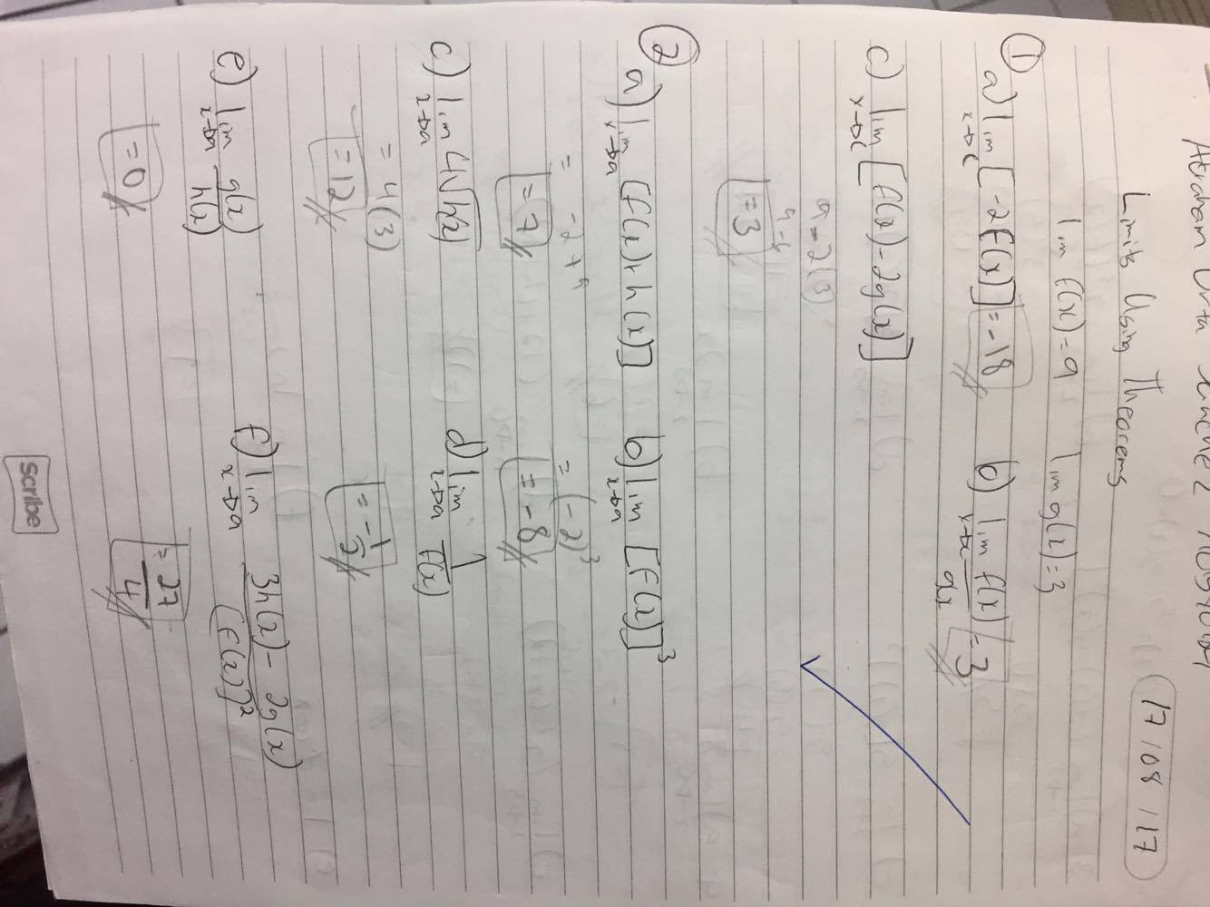 17/08/17
Limits Using Theorems
lim f(x)=9 lim g(x)=3
① a) lim x→c [-2f(x)]=-18 b) lim x→c f(x)/gx =3
c) lim x→c [f(x)-2g(x)]
9-2(3)
9-6
=3
② a) lim x→a [f(x)+h(x)] b) lim x→a [f(x)]³
= -2+9 = (-2)³
=7 =-8
c) lim x→a 4√h(x) d) lim x→a 1/f(x)
= 4(3)
=12 =-1/2
e) lim x→a g(x)/h(x) f) lim x→a 3h(x)-2g(x)/[f(x)]²
=0 =27/4
Scribe